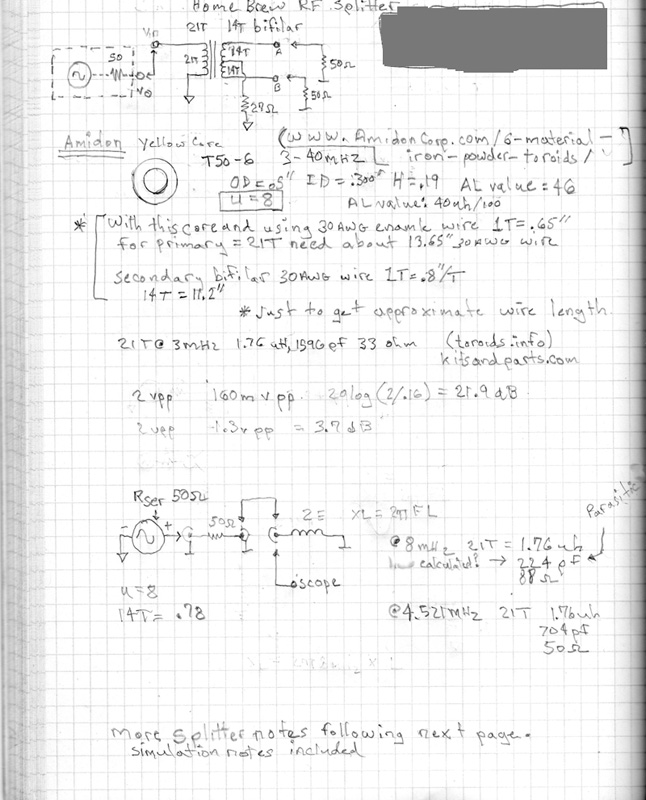 Home Brew RF Splitter
21T 14T bifilar
Vin
50
21T
14T
A
14T
B
50Ω
50Ω
Amidon Yellow Core
(www.AmidonCorp.com/6-material-
iron-powder-toroids/
T50-6 3-40MHZ
OD=.5" ID=.300" H=.19 AL value=46
u=8
AL value: 40uh/100
* With this core and using 30AWG enamle wire 1T=.65"
for primary = 21T need about 13.65" 30AWG wire
secondary bifilar 30AWG wire 1T=.8"/T
14T=11.2"
* Just to get approximate wire length.
21T@3MHZ 1.76uH, 1596pf 33 ohm (toroids.info)
kitsandparts.com
2vpp 160mvpp. 20log(2/.16)=21.9dB
2vpp 1.3vpp = 3.7dB
Rser 50Ω
50Ω
XL=2πFL
Parasitic
- +
@8mHz 21T=1.76uh
calculated → 224pf
88Ω
oscope
u=8
14T=.78
@4.521MHz 21T 1.76uh
704pf
50Ω
more splitter notes following next page.
simulation notes included